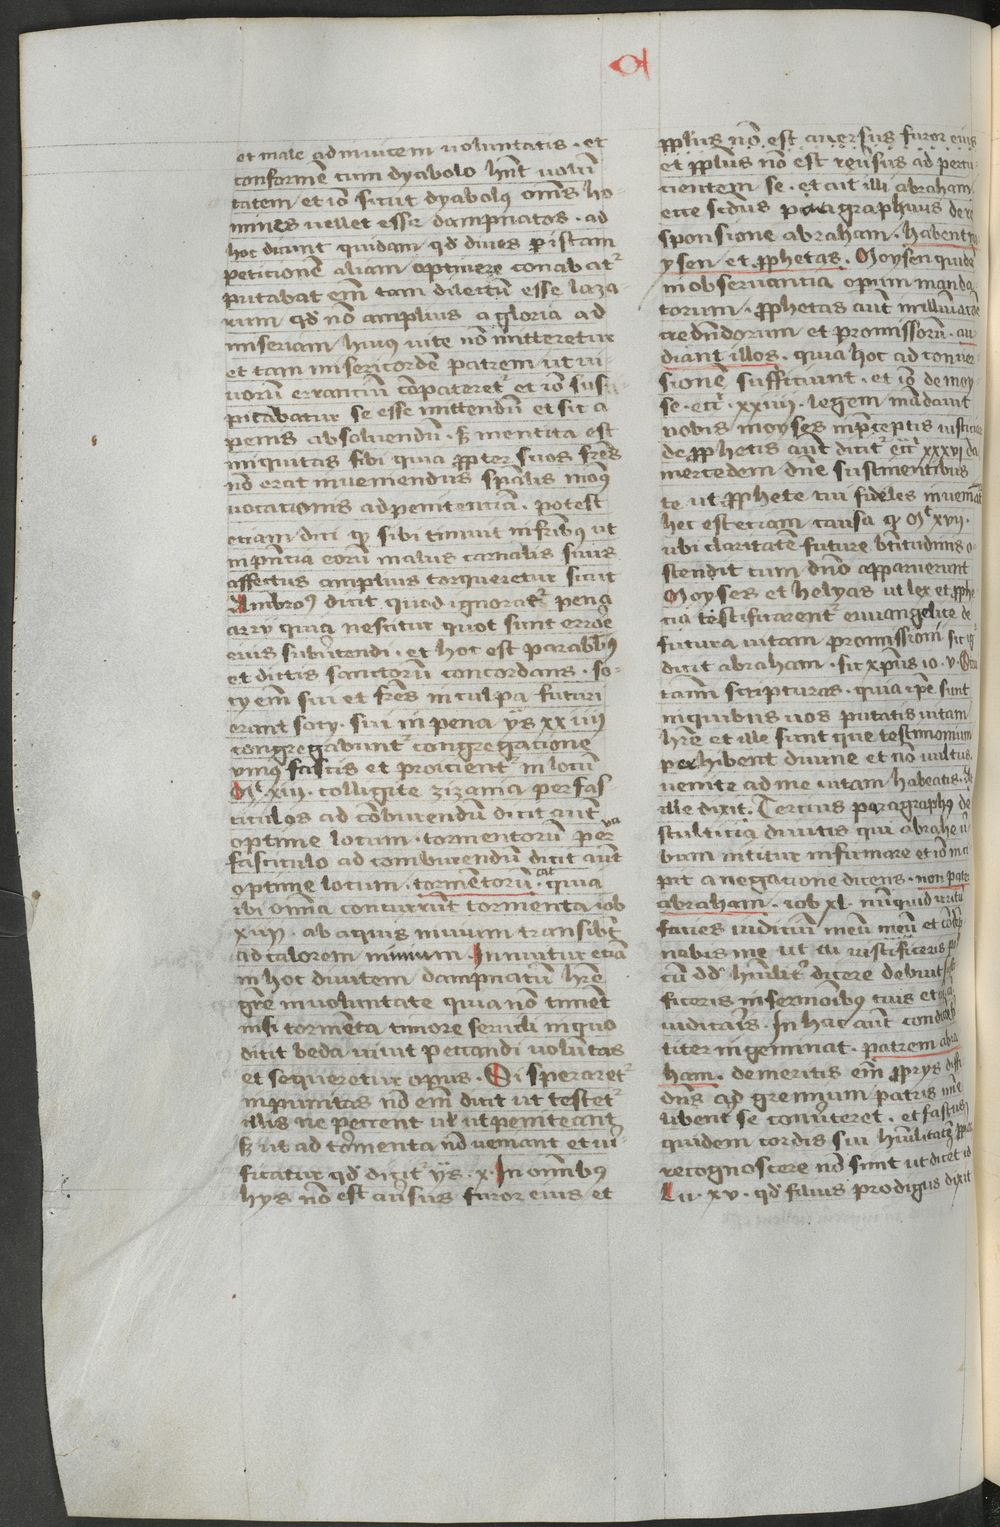 et male adinuicem uoluntatis · et
conformē cum dyabolo hn̄t uolū
tatem · et iō sicut dyabolꝯ om̄s ho
mines uellet esse dampnatos · ad
hoc dicunt quidam qd̄ diues ꝑ istam
peticionē aliam optinere conabatʳ
putabat em̄ tam dilectū esse laza
rum qd̄ nō amplius a gloria ad
miseriam huiꝯ uite nō mitteretur
et tam misericordē patrem ut ui
uorū errancium cōpateretʳ et iō sus
picabatur se esse mittendū et sic a
penis absoluendū · sꝫ mentita est
iniquitas sibi quia ꝓpter suos frēs
nō erat inueniendus sp̄alis modꝯ
uocacionis ad penitenciā · potest
eciam dici qꝫ sibi timuit in fr̄ibꝯ ut
inp̄ncia eorū malus carnalis suus
affectus amplius torqueretur sicut
Ambroꝯ dicit quod ignoratʳ pena
arry quia nescitur quot sunt errōe
eius subūtendi · et hoc est
et dictis sanctorū concordans · so
cy em̄ sui et frēs in culpa futuri
erant socy · sui in pena ys xxiiij
congregabuntʳ congregacione
vniꝯ fascis et proicientʳ in locū
Mt̄ xiij · colligite zizania per fas
ciculos ad cōburendū dicit aut̄
optime locum · tormentorū per
fasciculo ad comburendū dicit aut̄
optime locum · tormentorū · quia
ibi om̄ia concurrūt tormenta iob
xxiiij · ab aquis niuium transibt̄
ad calorem nimium · Innuitur eciā
in hoc diuitem dampnatū hr̄e
gr̄e in uoluntate quia nō timet
nisi tormenta timore seruili in quo
dicit beda uiuit peccandi uolūtas
et sequeretur opus · Si speraretʳ
inpunitas nō em̄ dicit ut testetʳ
illis ne peccent ul̄ ut peniteant
sꝫ ut ad tormenta nō ueniant et ui
ficatur qd̄ dicitʳ ys · x · In om̄ibꝯ
hys nō est au͛sus furor eius et
ꝓplus nō est auersus furor eius
et ꝓplus nō est reūsus ad percu
cientem se · et ait illi abraham
ecce sc̄dus paragraphus de re
sponsione abraham · habent mo
ysen et ꝓphetas · Moysen quidē
in obseruancia operum manda
torum · ꝓphetas aut̄
credendorum et promissorū · au
diant illos · quia hoc ad conuer
sionē sufficiunt · et iō de moy
se · ecc̄i · xxiiij · legem mādauit
nobis moyses in p̄ceptis iusticie
de ꝓphetis aut̄ dicitʳ ecc̄i xxxvj da
mercedem dn̄e sustinentibus
te ut ꝓphete tui fideles inueniāt
hec est eciam causa qꝫ Mt̄ xvij ·
ubi claritatē future btītudinis o
stendit cum dn̄o apparuerunt
Moyses et helyas ut lex et ꝓphe
cia testificarentʳ ewangelice de
futura uitam promissioni sic igʳ
dicit abraham · sic xp̄us io · v · Scru
tamī scripturas · quia ip̄e sunt
in quibus uos putatis uitam
hr̄e et ille sunt que testimonium
perhibent diuine et nō uultus
uenite ad me uitam habeatis · At
ille dixit · Tercius paragraphꝯ de
stulticia diuitis qui abrahe ū
bum nititur infirmare et iō inci
pit a negatione dicens · non pater
abraham · iob xl · nūquid irritū
facies iudicium meū et cōdēp
nabis me ut tu iustificeris
cū dd̄ hūilitʳ dicere debuit iusti
ficeris in sermōibꝯ tuis et
iudicaris · In hac aut̄
titer ingeminat · patrem abra
ham · de meritis em̄ ꝓprys diffi
dens ad gremium patris
libent se conūteret · et fastus
quidem cordis sui hūilitatē
recognoscere nō sinit ut dicet id
Lu · xv · qd̄ filius prodigus dixit